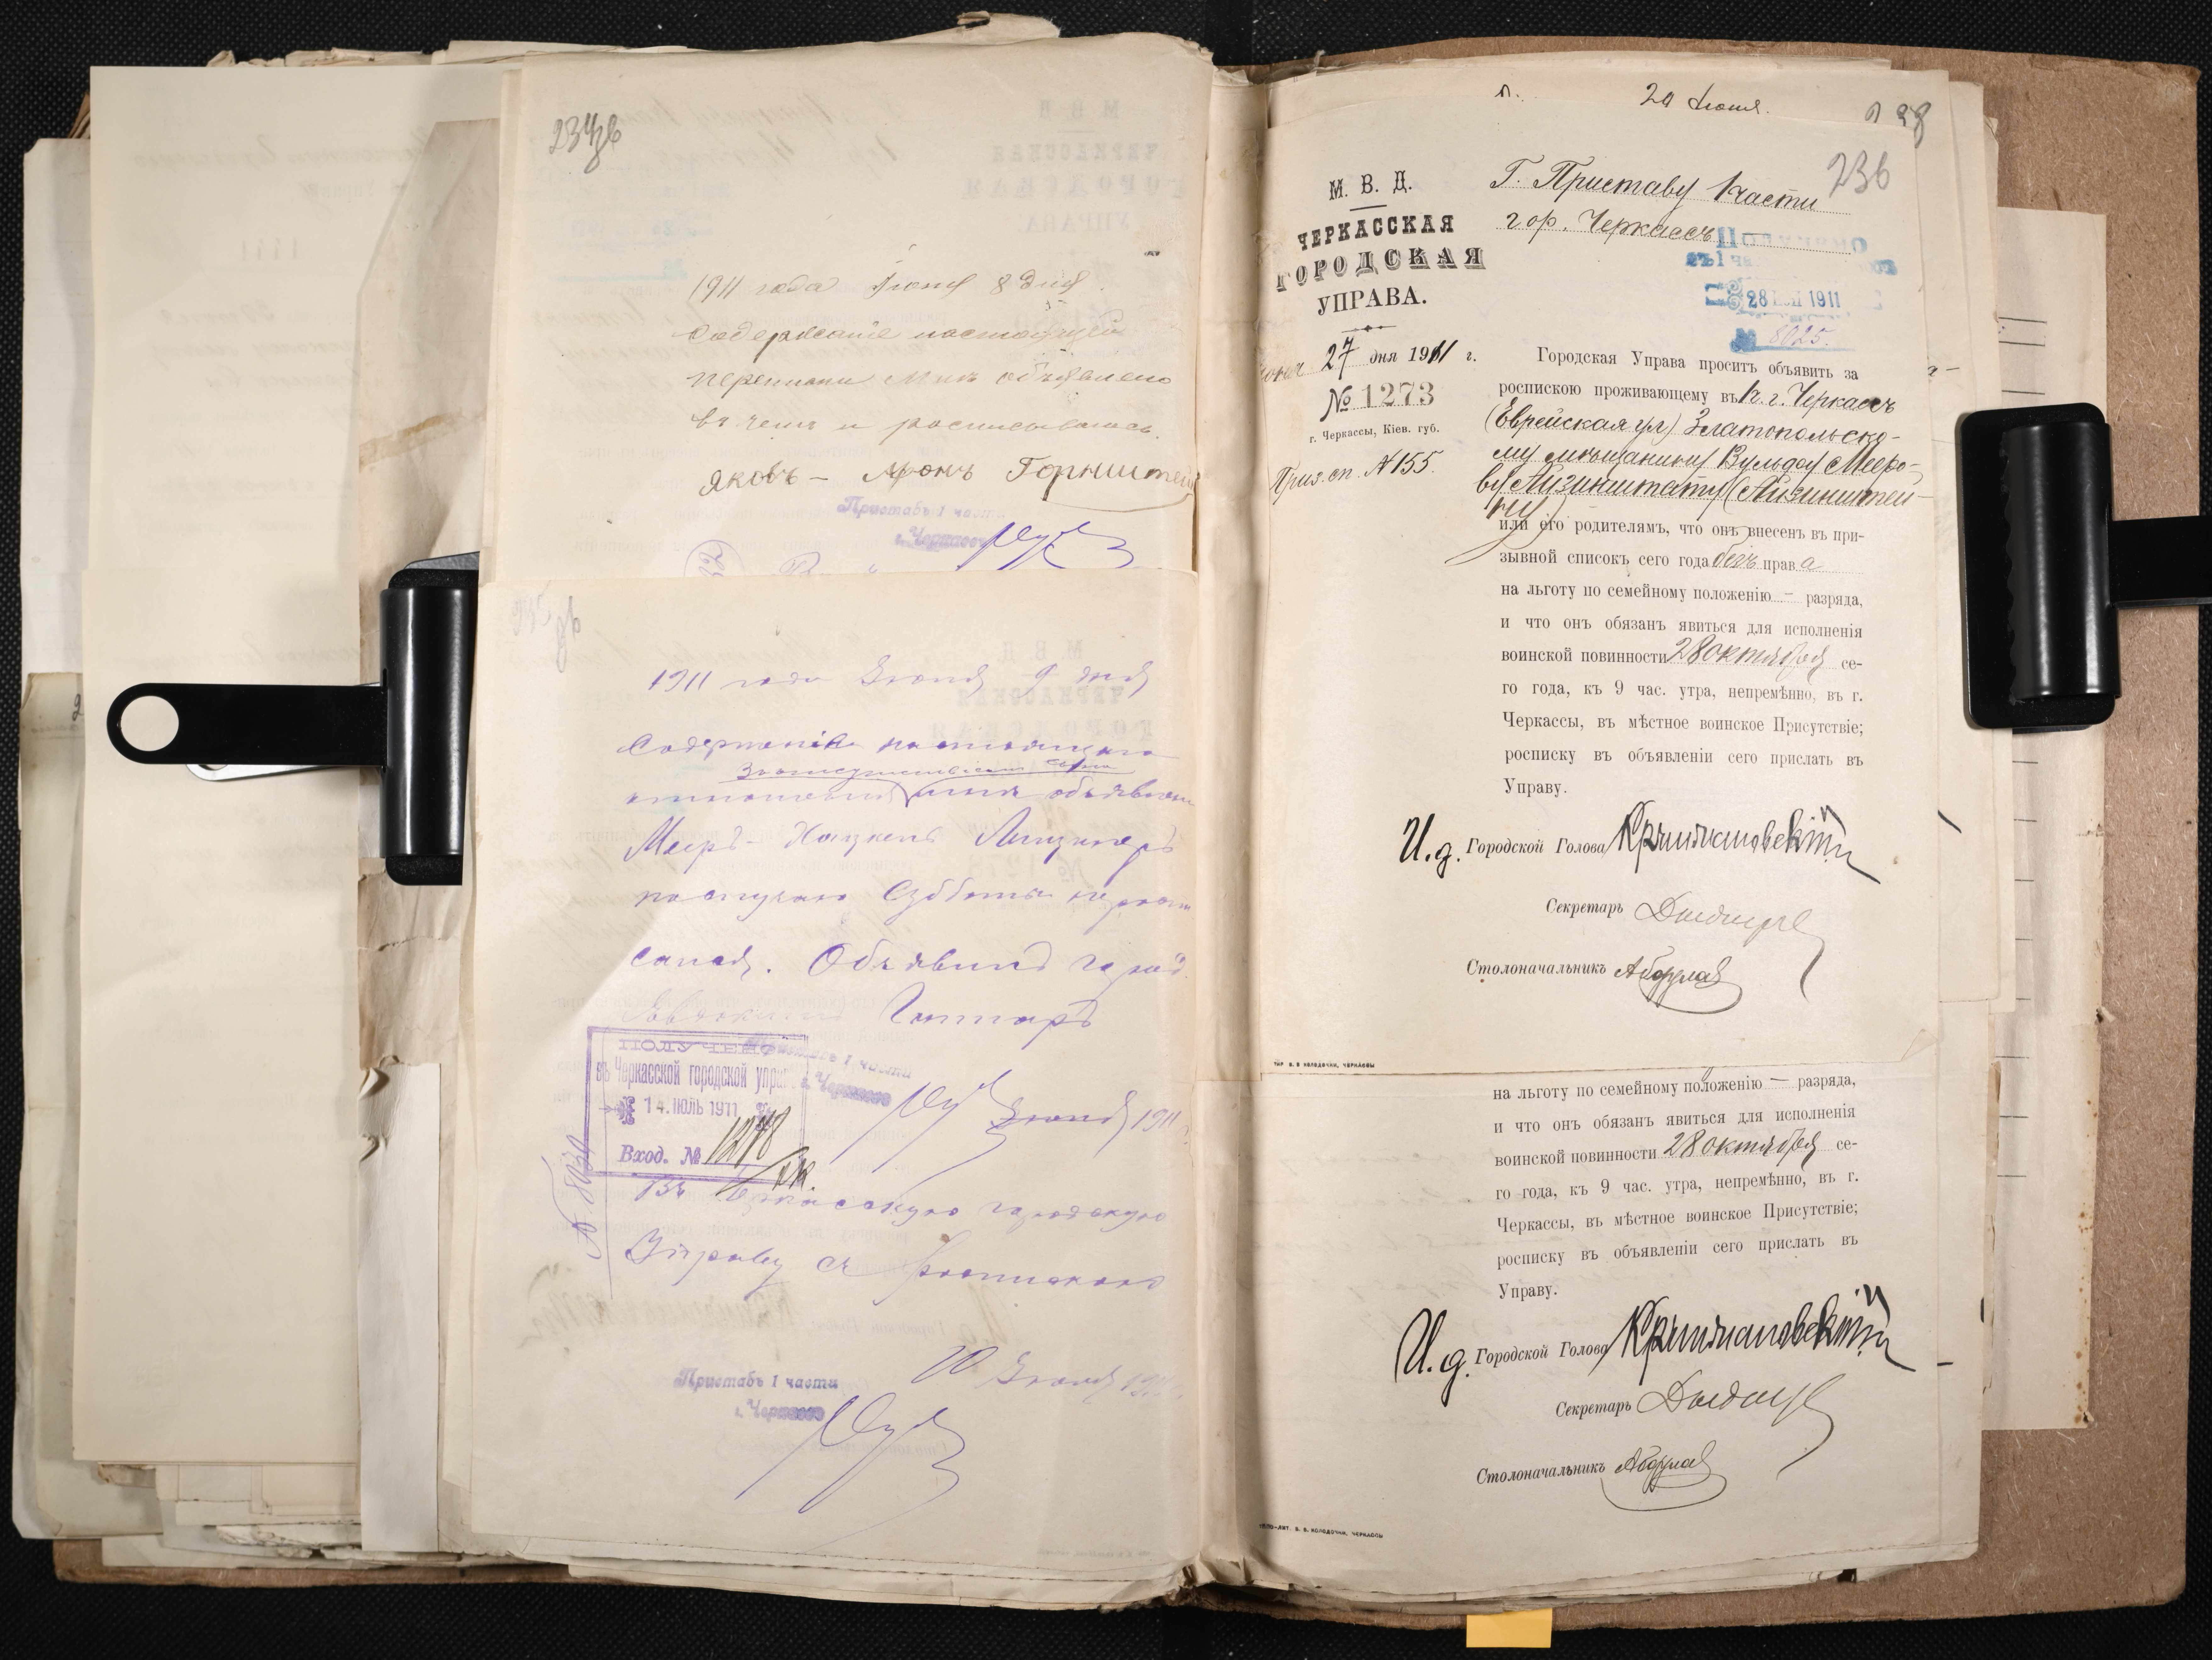 234об
1911 года Іюня 8 дня.
Содержаніе настоящей
переписки мнѣ объявлено
въ чемъ и росписываюсь.
Яковъ - Аронъ Горнштейн
Приставъ 1 части
г. Черкассъ
235 об
1911 года Іюня 9 дня
Содержаніе настоящаго
отношенія мнѣ объявлено
Мееръ-
по случаю Субботы не росписался. Объявилъ город.
ПОЛУЧЕНО
въ Черкасской городской управѣ
14.ІЮЛЬ 1911
Вход. №
Приставъ 1 части
г. Черкассъ
Іюня 1911
Въ Черкасскую городскую
Управу съ роспискою
10 Іюня
Приставъ 1 части
г. Черкассъ
20 Іюня.
236
М. В. Д.
ЧЕРКАССКАЯ
ГОРОДСКАЯ
УПРАВА.
27 дня 1911 г.
№ 1273
г. Черкассы, Кіев. губ.
Приз. сп. №155.
Г. Приставу 1 части
гор. Черкассъ
28 1911
№ 8025.
Городская Управа проситъ объявить за
роспискою проживающему въ 1 ч. г. Черкассъ
(Еврейская ул) Златопольско-
му мѣщанину Вульфу Мееро-
ву Айзинштату (Айзинштей-
ну)
или его родителямъ, что онъ внесенъ въ при-
зывной списокъ сего года безъ права
на льготу по семейному положенію - разряда,
и что онъ обязанъ явиться для исполненія
воинской повинности 28 октября се-
го года, къ 9 час. утра, непремѣнно, въ г.
Черкассы, въ мѣстное воинское Присутствіе;
росписку въ объявленіи сего прислать въ
Управу.
И.д. Городской Голова
Секретарь
Столоначальникъ
на льготу по семейному положенію — разряда,
и что онъ обязанъ явиться для исполненія
воинской повинности 28 октября се-
го года, къ 9 час. утра, непремѣнно, въ г.
Черкассы, въ мѣстное воинское Присутствіе;
росписку въ объявленіи сего прислать въ
Управу.
И.д. Городской Голова
Секретарь
Столоначальникъ